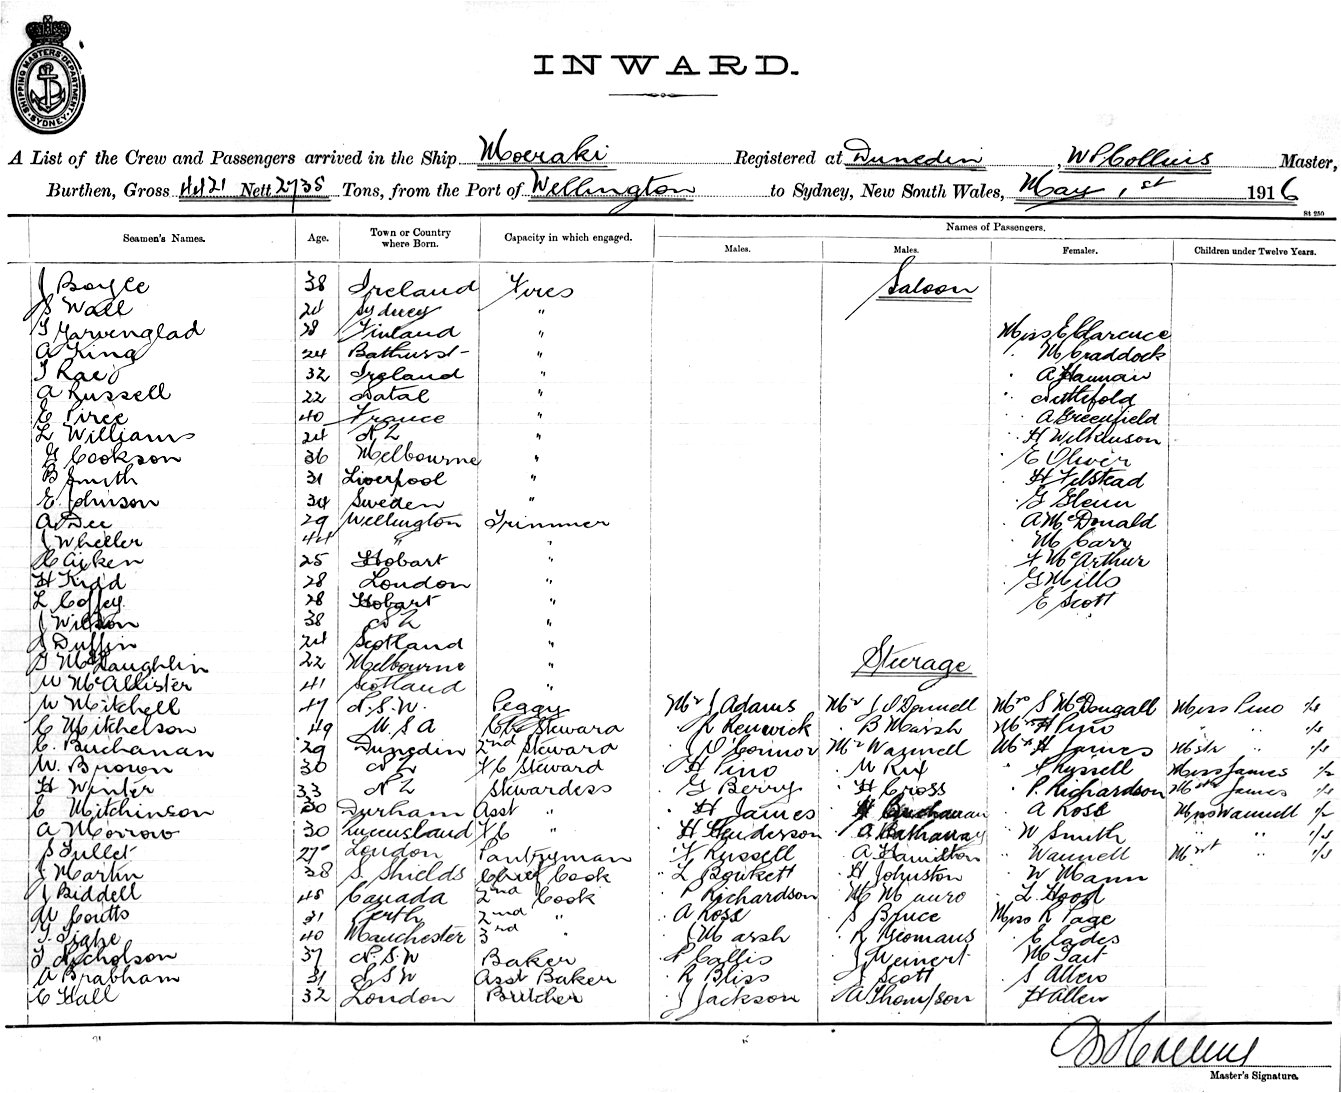 SHIPPING MASTERS DEPARTMENT. SYDNEY.
INWARD.
A List of the Crew and Passengers arrived in the Ship Moeraki Registered at Dunedin, W P Collins Master,
Burthen, Gross 4421 Nett 2735 Tons, from the Port of Wellington to Sydney, New South Wales, May 1st 1916
St 250
Seamen's Names. Age. Town or Country where Born. Capacity in which engaged. Names of Passengers.
Males. Males. Females. Children under Twelve Years.
J Boyle 38 Ireland Fires Saloon
S Wall 24 Sydney "
28 Finland " Miss E Clarence
A King 24 Bathurst " " M Craddock
T Rae 32 Ireland " " A Hannan
A Russell 22 Natal " "
E Piree 40 France " " A Greenfield
L Williams 24 N Z " " H Wilkinson
G Cookson 36 Melbourne " " E Oliver
B Smith 31 Liverpool " " H Filstead
E Johnson 34 Sweden " " G Glenn
A Dee 29 Wellington Trimmer " A McDonald
J Wheller 44 " " " M Carr
Aiken 25 Hobart " " F McArthur
H Kidd 28 London " " G Mills
L Coffey 28 Hobart " " E Scott
J Wilson 38 N Z "
J Duffin 24 Scotland "
McLaughlin 22 Melbourne " Steerage
W McAllister 41 Scotland "
W Mitchell 47 N.S.W. Peggy Mr J Adams Mr J O'Donnell Mrs S McDougall Miss Pino
C Mitchelson 49 U.S A Steward " Renwick " B Marsh Mrs H Pino " "
C. Buchanan 29 Dunedin 2nd Steward " J O'Connor Mr Wannell Mrs H James Mstr "
W. Brown 30 N Z F C Steward " H Pino " W Rix " F Russell Miss James
H Winter 33 N Z Stewardess " G Berry " H Cross " P Richardson Mstr James
E Mitchinson 30 Durham Asst " " H James " H Buchanan " A Ross Miss Wannell
A Morrow 30 Queensland " " H Henderson " A Hathaway " W Smith " "
S Tullet 27 London Pantryman " F Russell " A Hamilton " Wannell Mstr "
J Martin 38 S. Shields Chief Cook " L Bowkett " H Johnston " W Mann
J Biddell 48 Canada 2nd Cook " P Richardson " M Munro " L Hood
W Coutts 31 Perth 2nd " " A Ross " S Bruce Miss R Page
T. Tighe 40 Manchester 3rd " " J Marsh " R Yeomans " E Eades
T Nicholson 37 N.S.W Baker " P Callis " J Weinert " M Tait
A Brabham 31 N S W Asst Baker " R Bliss " J Scott " S Allen
C Hall 32 London Butcher " J Jackson " A Thompson " H Allen
W P Collins
Master's Signature.